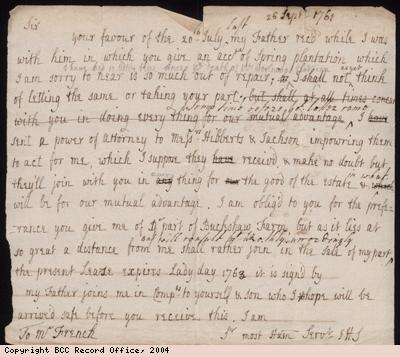 26 Septr 1761
Sir
your favour of the 20th July my Father recd while I was
with him in which you give an acct of Spring plantation which
I am sorry to hear is so much out of repair, I shall not think
of letting the same or taking your part, but shall at all times
with you in doing every thing for our mutual advantage I have
sent a power of attorney to Messrs Hibbert & Jackson impowring them
to act for me, which I suppose they have received & make no doubt but
theyll join with you in any thing for the good of the estate &
will be for our mutual advantage. I am obligd to you for the prefe-
rance you give me of part of Buckshaw Farm, but as it lies at
so great a distance from me shall rather join in the sale of my part
the present Lease expires Lady day 1763 it is signd by
my Father joins me in Compts to yourself & son who I hope will be
arrived safe before you receive this, I am
To Mr French Yr most Hum Servt
Copyright BCC Record Office, 2004